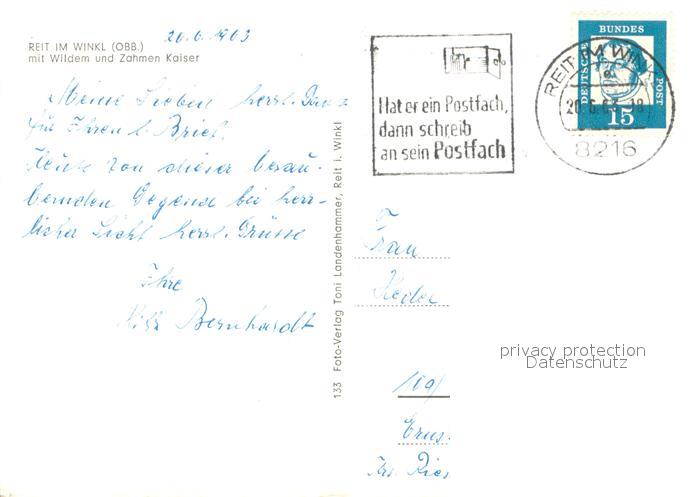 20.6.1963
REIT IM WINKL (OBB.)
mit Wildem und Zahmen Kaiser
Meine Lieben herzl. Dank
für Ihren l. Brief.
Heute von dieser bezau-
bernden Gegend bei herr-
licher Sicht herzl. Grüsse
Ihre
Bernhardt
133 Foto-Verlag Toni Landenhammer, Reit i. Winkl
Hat er ein Postfach,
dann schreib
an sein Postfach
REIT IM WINKL
20.6.63-18
8216
DEUTSCHE BUNDES POST
15
Frau
privacy protection
Datenschutz